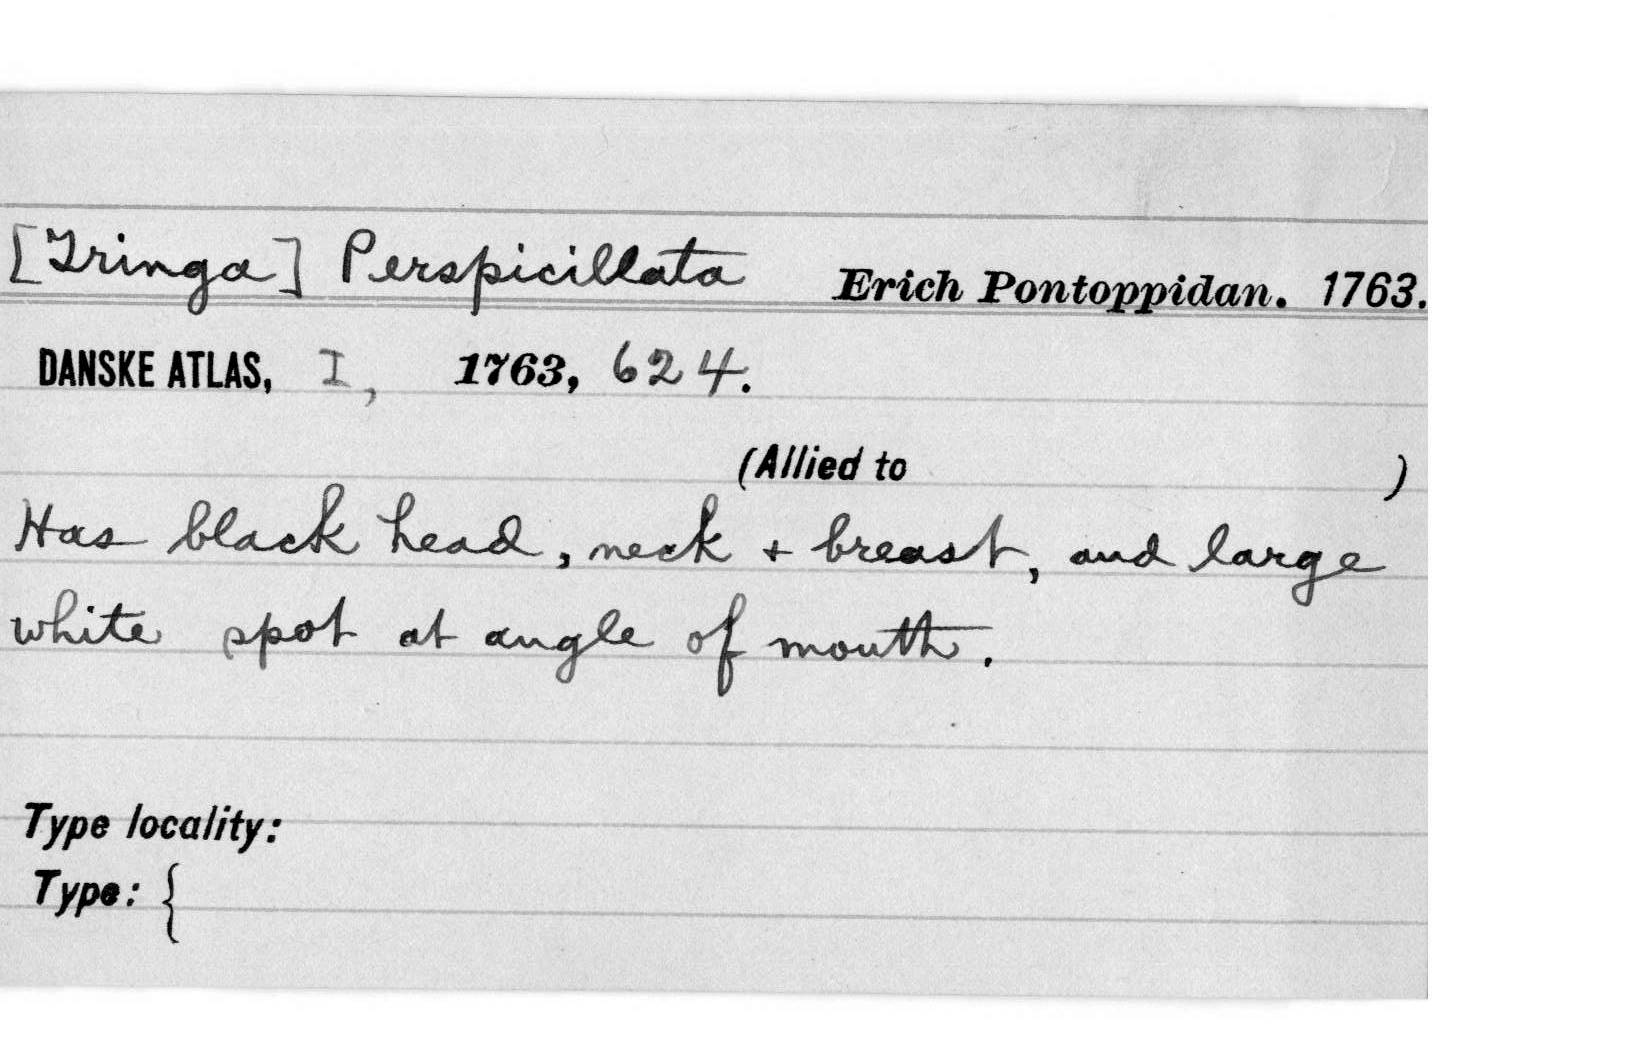 [Tringa] Perspicillata Erich Pontoppidan. 1763.
DANSKE ATLAS, I, 1763, 624.
(Allied to )
Has black head, neck + breast, and large
white spot at angle of mouth.
Type locality:
Type: {